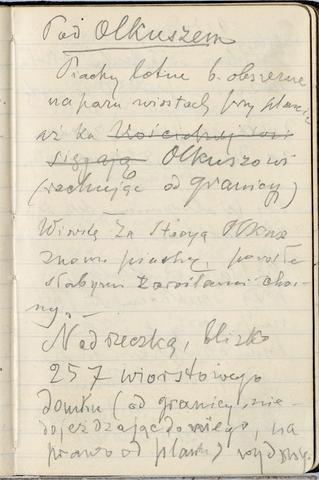 Pod Olkuszem
Piachy lotne b. obszerne
na paru wiorstach przy plancie
aż ku Kościelnej wsi
sięgają Olkuszowi
(rachując od granicy)
Wiorstę za stacyą Olkusz
znowu piachy, porosłe
słabym zaroślami choi-
ny. –
Nad rzeczką, blizko
257 wiorstowego
domku (od granicy, nie-
dojeżdżając do niego, na
prawo od plantu)